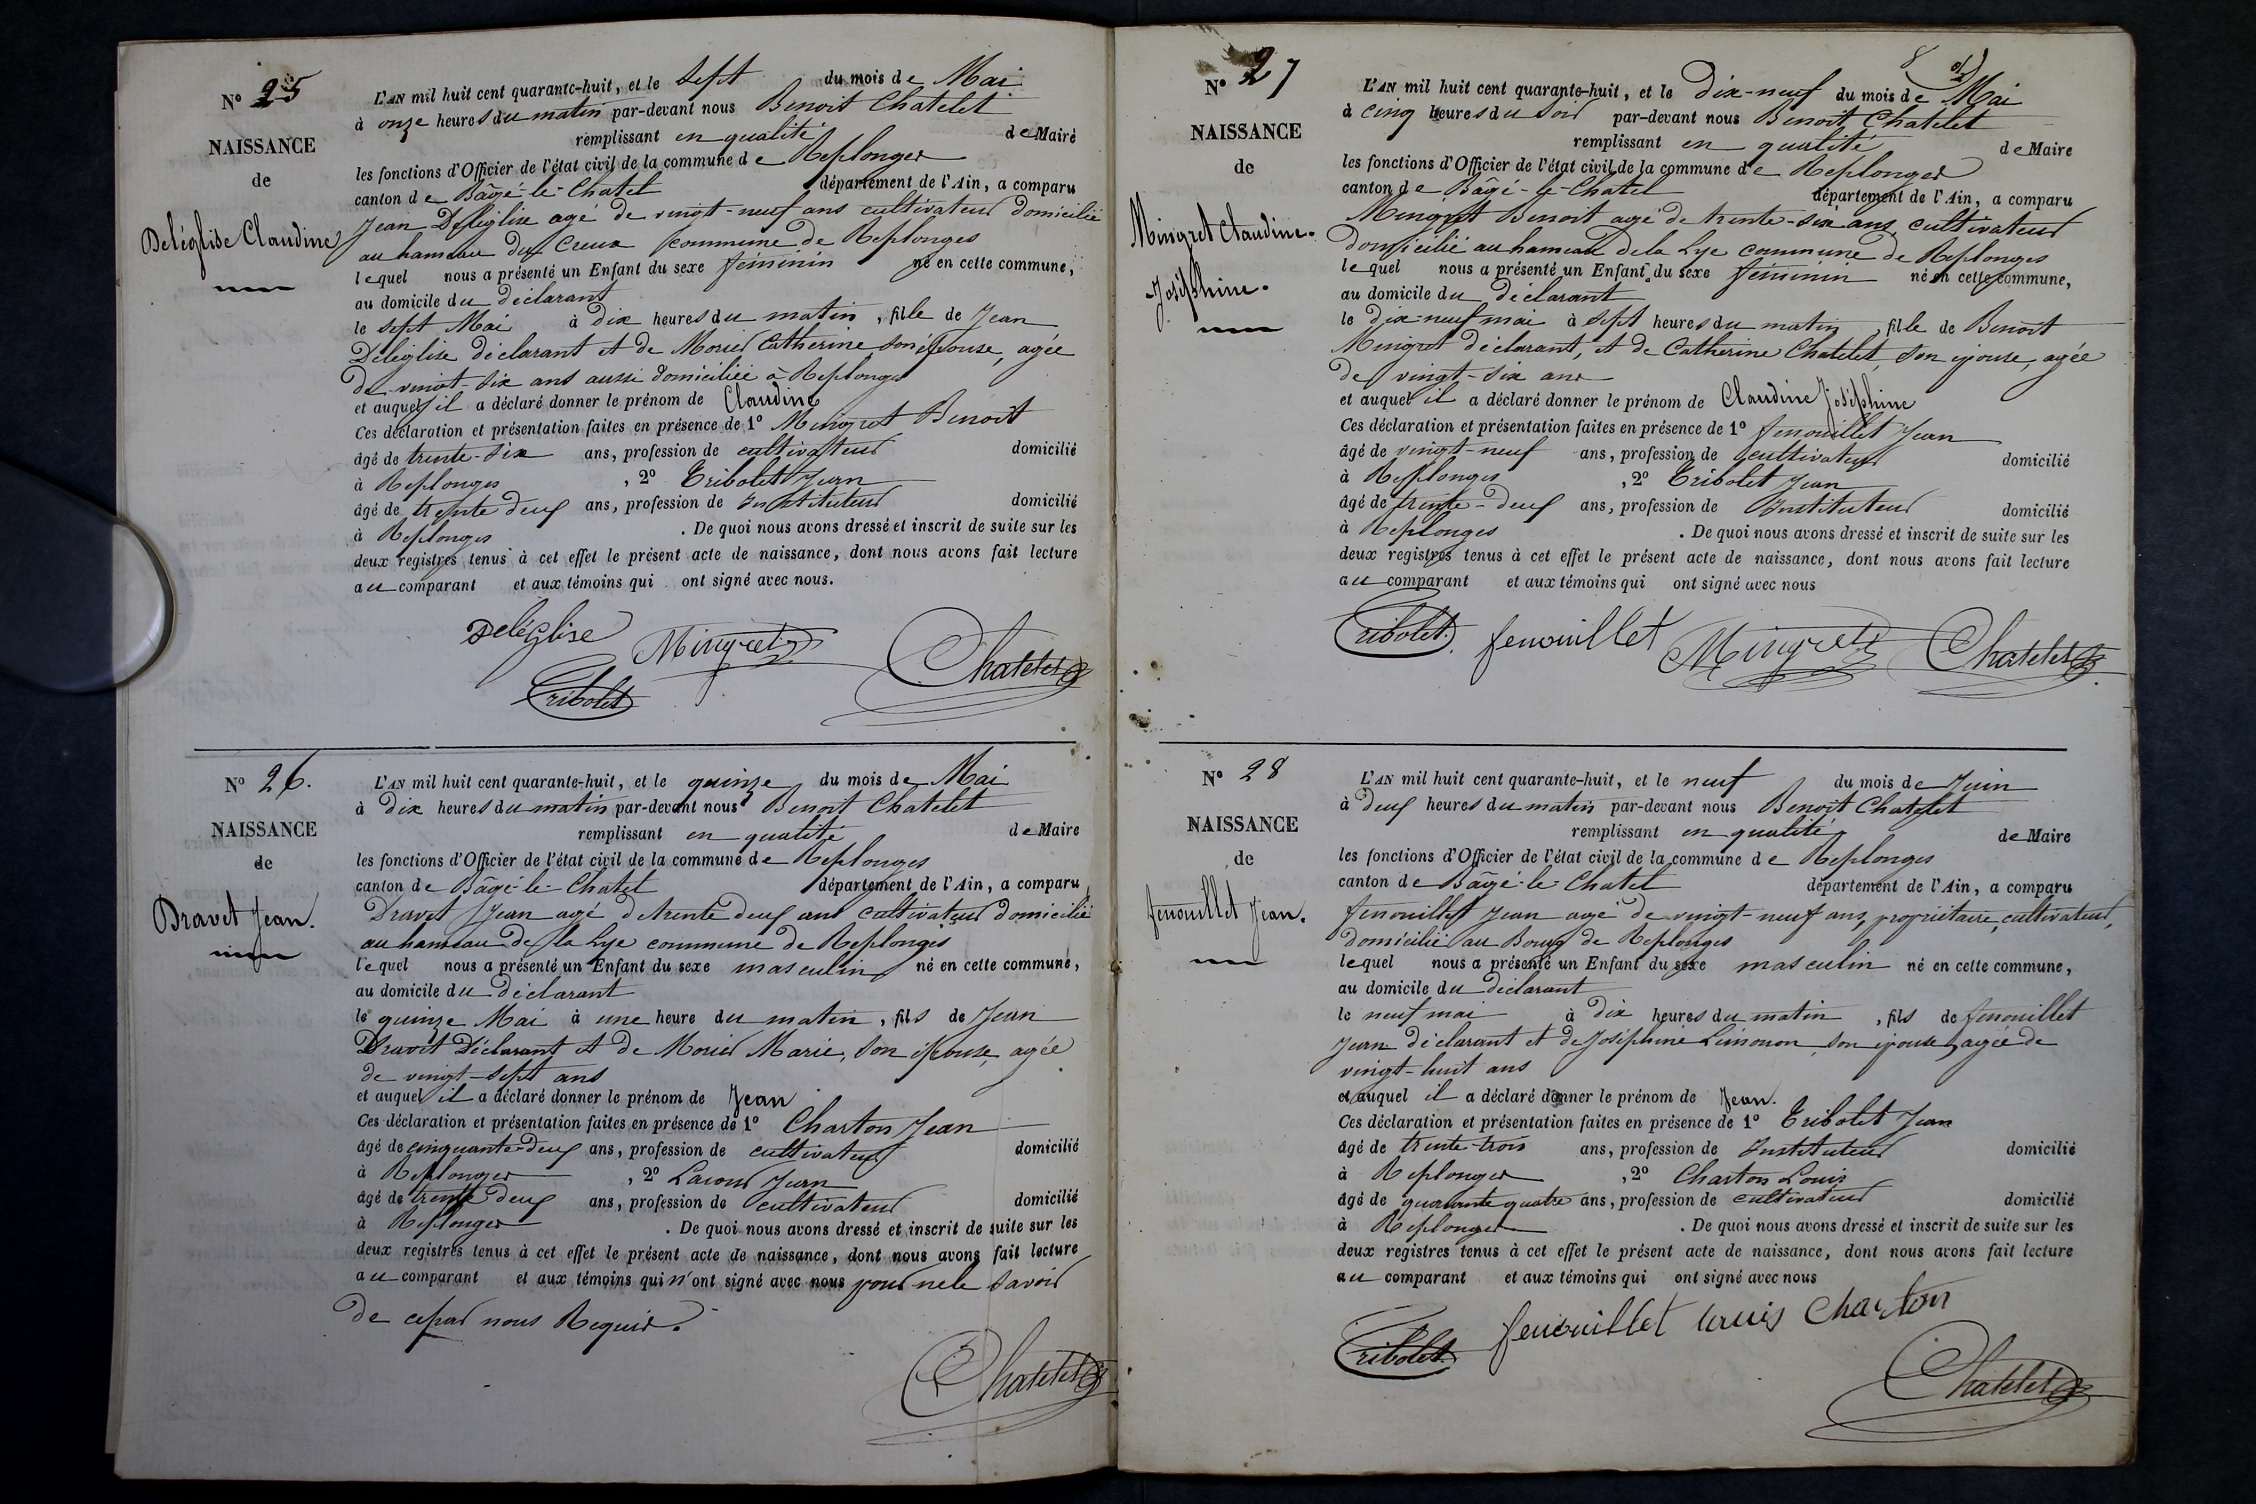 N° 25
NAISSANCE
de
Deléglise Claudine
L'AN mil huit cent quarante-huit, et le sept du mois de Mai
à onze heures du matin par-devant nous Benoit Chatelet
remplissant en qualité de Maire
les fonctions d'Officier de l'état civil de la commune de Replonges
canton de Bâgé-le-Chatel département de l'Ain, a comparu
Jean Deléglise agé de vingt-neuf ans cultivateur domicilié
au hameau des Creux commune de Replonges
lequel nous a présenté un Enfant du sexe féminin né en cette commune,
au domicile du déclarant
le sept Mai à dix heures du matin, fille de Jean
Deléglise déclarant et de Morier Catherine son épouse, agée
de vingt-six ans aussi domiciliée à Replonges
et auquel il a déclaré donner le prénom de Claudine
Ces déclaration et présentation faites en présence de 1° Mingret Benoit
âgé de trente-six ans, profession de cultivateur domicilié
à Replonges, 2° Tribolet Jean
âgé de trente deux ans, profession de Instituteur domicilié
à Replonges. De quoi nous avons dressé et inscrit de suite sur les
deux registres tenus à cet effet le présent acte de naissance, dont nous avons fait lecture
au comparant et aux témoins qui ont signé avec nous.
Deléglise Mingret Chatelet
Tribolet
N° 26.
NAISSANCE
de
Dravet Jean.
L'AN mil huit cent quarante-huit, et le quinze du mois de Mai
à dix heures du matin par-devant nous Benoit Chatelet
remplissant en qualité de Maire
les fonctions d'Officier de l'état civil de la commune de Replonges
canton de Bâgé-le-Chatel département de l'Ain, a comparu
Dravet Jean agé de trente deux ans cultivateur domicilié
au hameau de la Lye commune de Replonges
lequel nous a présenté un Enfant du sexe masculin né en cette commune,
au domicile du déclarant
le quinze Mai à une heure du matin, fils de Jean
Dravet Déclarant et de Morier Marie, son épouse, agée
de vingt-sept ans
et auquel il a déclaré donner le prénom de Jean
Ces déclaration et présentation faites en présence de 1° Charton Jean
âgé de cinquante deux ans, profession de cultivateur domicilié
à Replonges, 2° Lacour Jean
âgé de trente deux ans, profession de cultivateur domicilié
à Replonges. De quoi nous avons dressé et inscrit de suite sur les
deux registres tenus à cet effet le présent acte de naissance, dont nous avons fait lecture
au comparant et aux témoins qui n'ont signé avec nous pour ne le savoir
de ce par nous Requis.
Chatelet
8
N° 27
NAISSANCE
de
Mingret Claudine-
Joséphine.
L'AN mil huit cent quarante-huit, et le dix-neuf du mois de Mai
à cinq heures du soir par-devant nous Benoit Chatelet
remplissant en qualité de Maire
les fonctions d'Officier de l'état civil de la commune de Replonges
canton de Bâgé-le-Chatel département de l'Ain, a comparu
Mingret Benoit agé de trente-six ans, cultivateur
domicilié au hameau de la Lye commune de Replonges
lequel nous a présenté un Enfant du sexe féminin né en cette commune,
au domicile du déclarant
le dix-neuf mai à sept heures du matin, fille de Benoit
Mingret déclarant, et de Catherine Chatelet, son épouse, agée
de vingt-six ans
et auquel il a déclaré donner le prénom de Claudine Joséphine
Ces déclaration et présentation faites en présence de 1° fenouillet Jean
âgé de vingt-neuf ans, profession de cultivateur domicilié
à Replonges, 2° Tribolet Jean
âgé de trente-deux ans, profession de Instituteur domicilié
à Replonges. De quoi nous avons dressé et inscrit de suite sur les
deux registres tenus à cet effet le présent acte de naissance, dont nous avons fait lecture
au comparant et aux témoins qui ont signé avec nous
Tribolet. fenouillet Mingret Chatelet
N° 28
NAISSANCE
de
fenouillet Jean.
L'AN mil huit cent quarante-huit, et le neuf du mois de Juin
à deux heures du matin par-devant nous Benoit Chatelet
remplissant en qualité de Maire
les fonctions d'Officier de l'état civil de la commune de Replonges
canton de Bâgé-le-Chatel département de l'Ain, a comparu
fenouillet Jean agé de vingt-neuf ans, propriétaire, cultivateur,
domicilié au Bourg de Replonges
lequel nous a présenté un Enfant du sexe masculin né en cette commune,
au domicile du déclarant
le neuf mai à dix heures du matin, fils de fenouillet
Jean déclarant et de Joséphine Limonon, son épouse, agée de
vingt-huit ans
et auquel il a déclaré donner le prénom de Jean.
Ces déclaration et présentation faites en présence de 1° Tribolet Jean
âgé de trente-trois ans, profession de Instituteur domicilié
à Replonges, 2° Charton Louis
âgé de quarante quatre ans, profession de cultivateur domicilié
à Replonges. De quoi nous avons dressé et inscrit de suite sur les
deux registres tenus à cet effet le présent acte de naissance, dont nous avons fait lecture
au comparant et aux témoins qui ont signé avec nous
Tribolet fenouillet Louis Charton
Chatelet